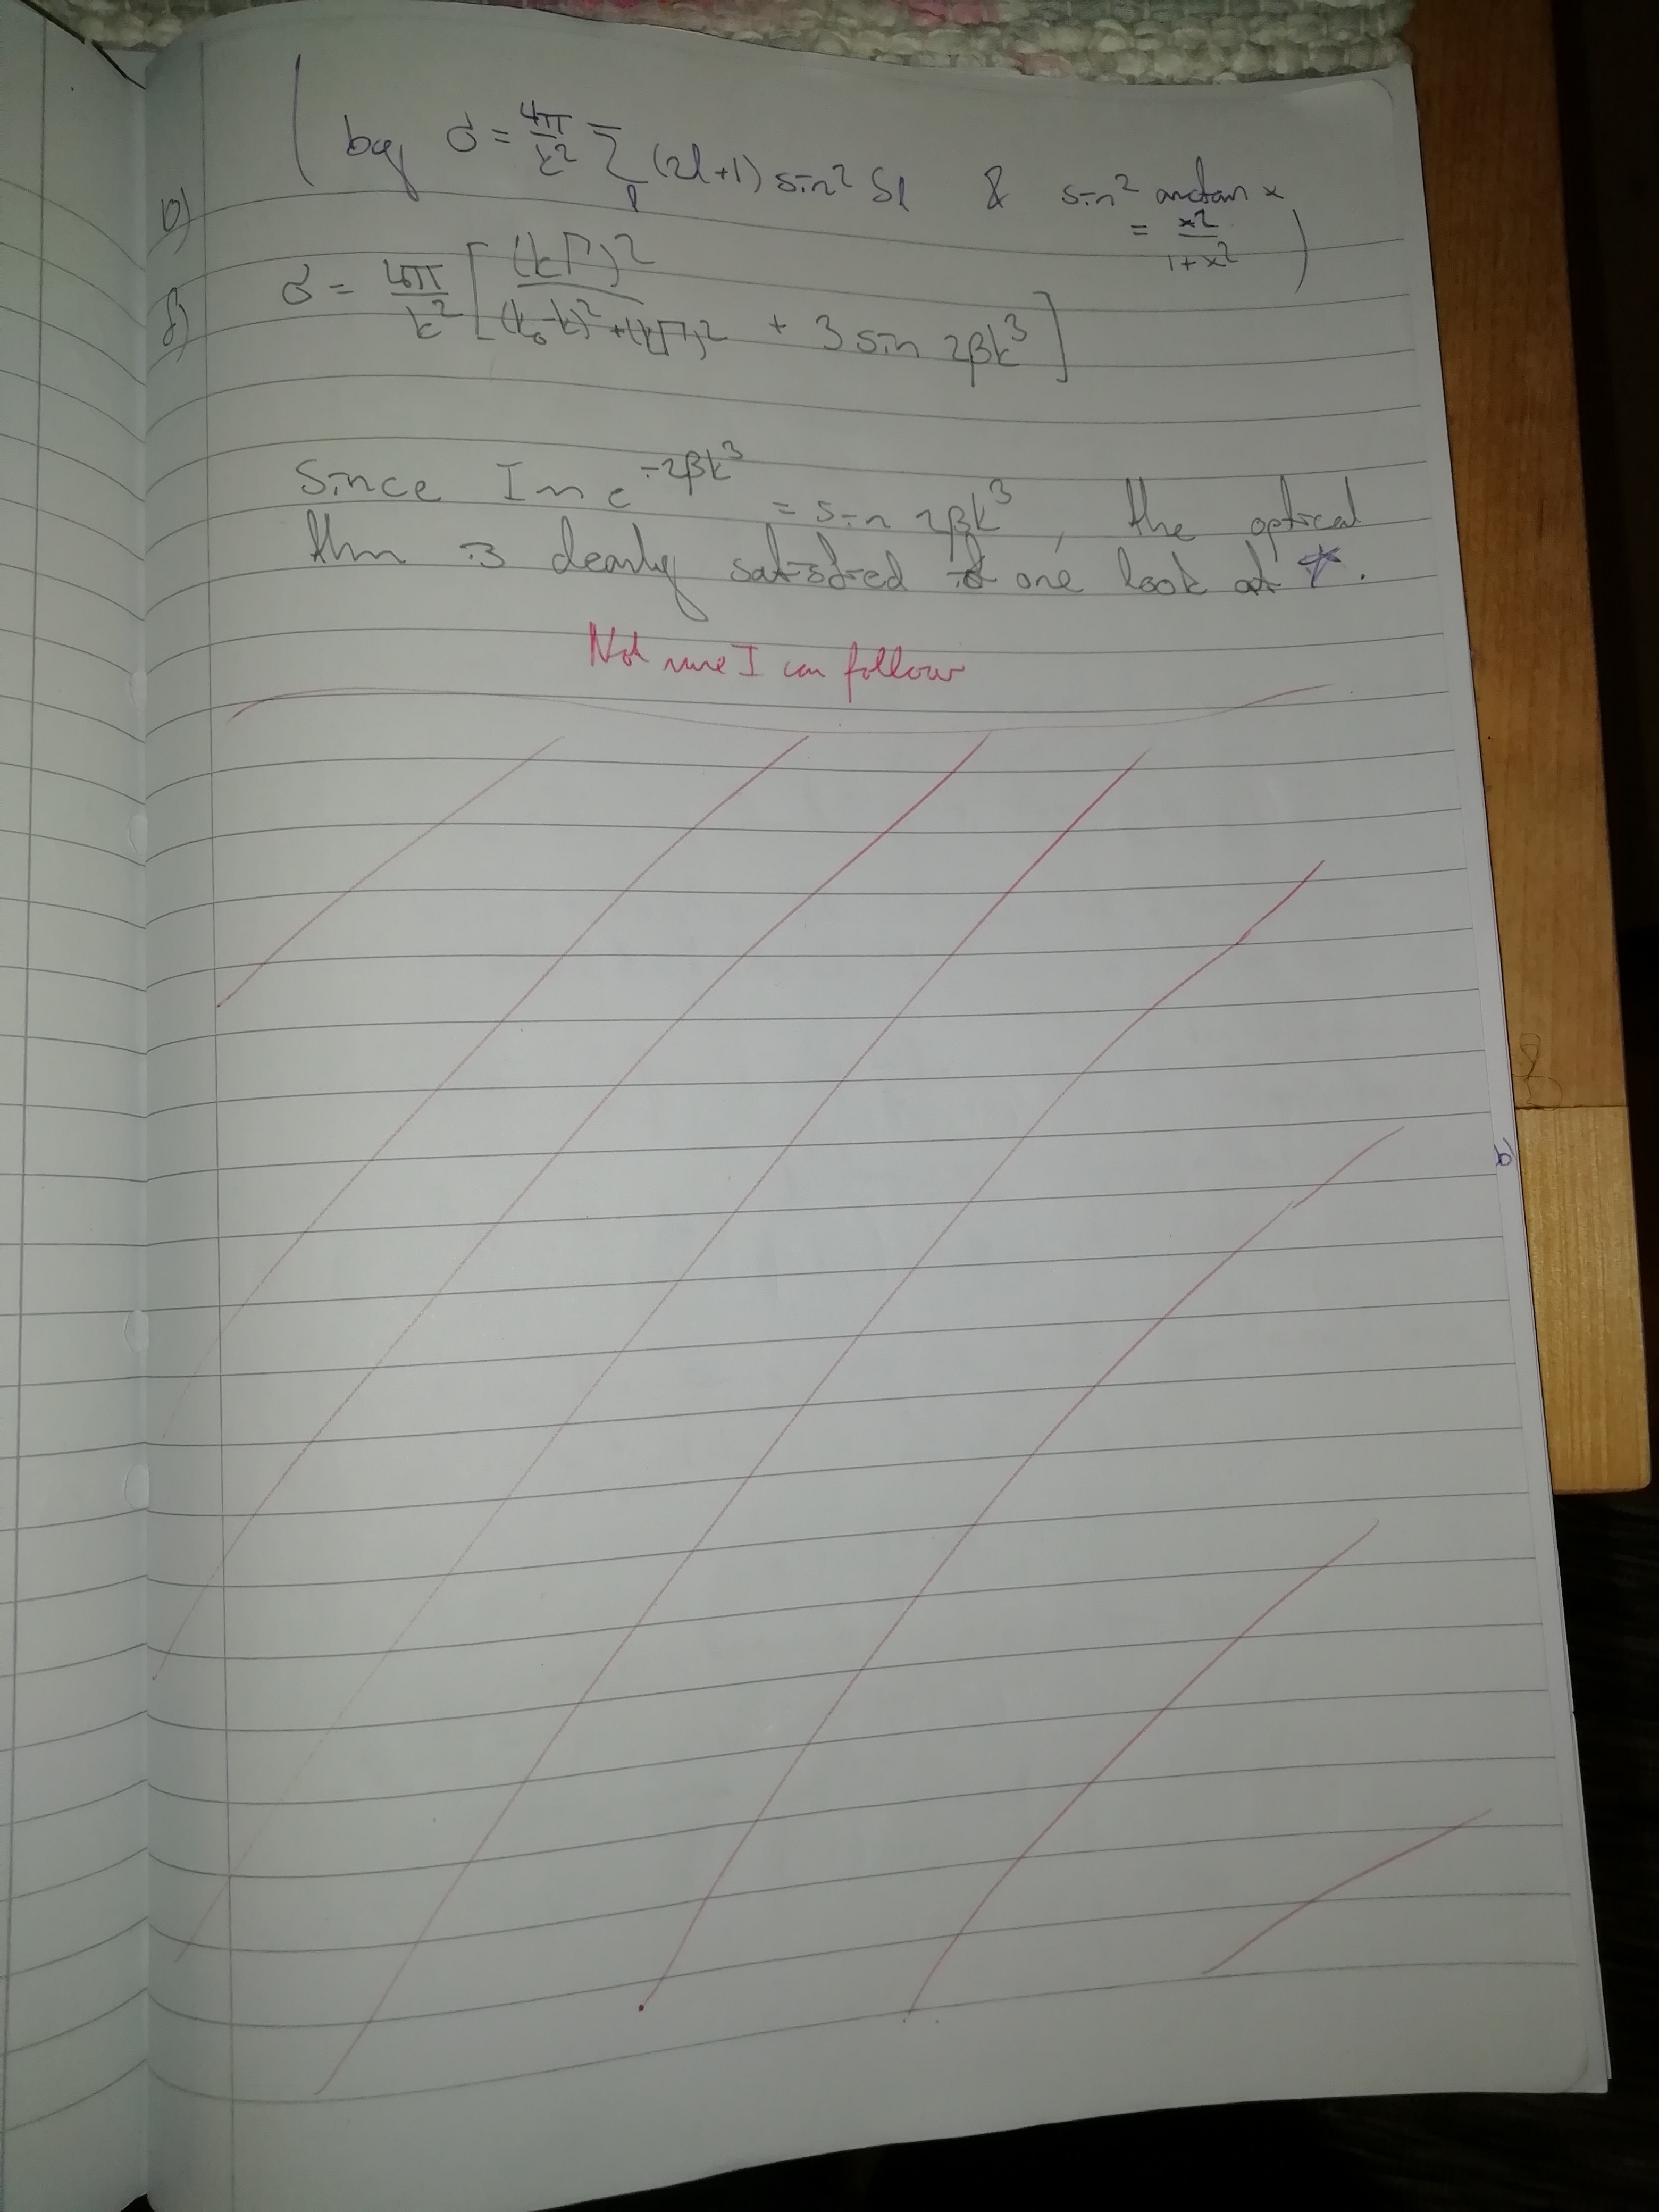 ( by σ = 4π/k² Σ_l (2l+1) sin² δl & sin² arctan x
= x²/1+x² )
e)
f) σ = 4π/k² [ (kΓ)²/(k₀-k)²+(kΓ)² + 3 sin 2βk³ ]
Since Im e^i2βk³ = sin 2βk³, the optical
thm is clearly satisfied if one look at *.
Not sure I can follow